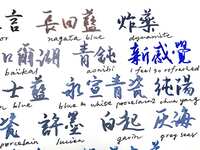 長田藍 炸藥
nagata blue dynamite
爾湖 青鈍 新感覺
baikal aonibi i feel so refreshed
士藍 永宣青瓷 純陽
blue blue & white porcelain chun yang
瓷 許墨 白起 灰海
lucien gavin grey seas